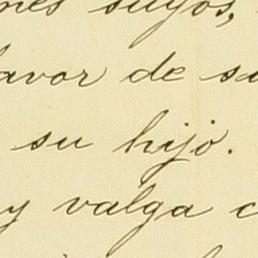 suyos,
avor de su
su hijo.
y valga c